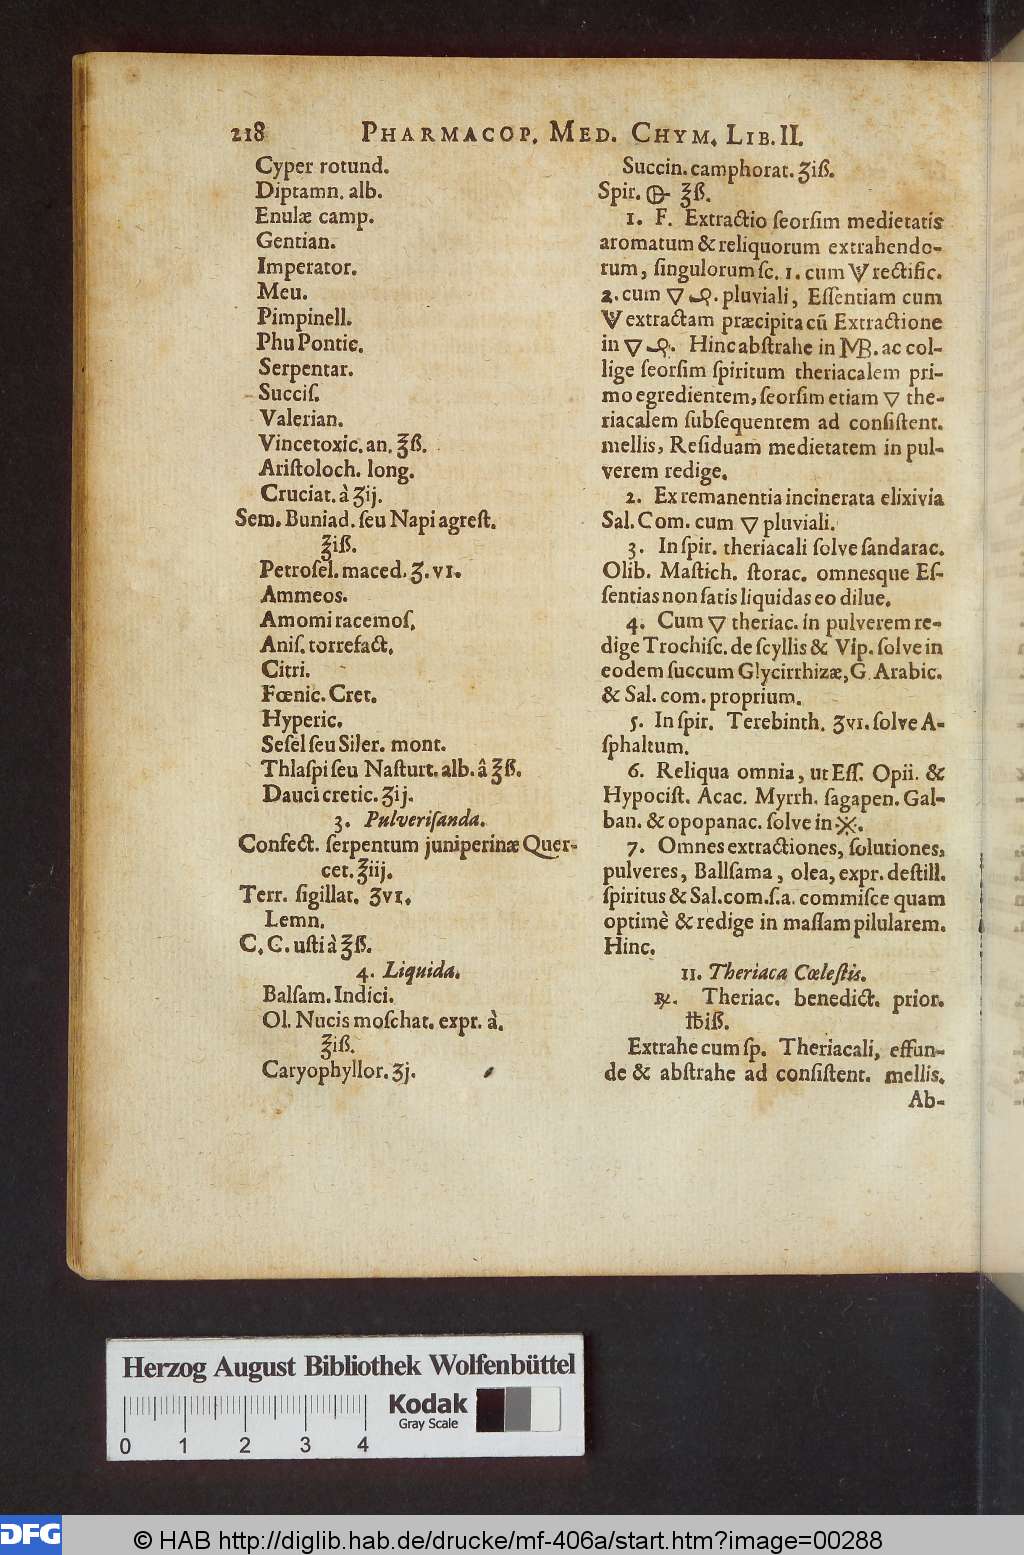 218 PHARMACOP. MED. CHYM. LIB. II.
Cyper rotund.
Diptamn. alb.
Enulæ camp.
Gentian.
Imperator.
Meu.
Pimpinell.
Phu Pontic.
Serpentar.
Succiſ.
Valerian.
Vincetoxic. an. ℥ß.
Ariſtoloch. long.
Cruciat. à ʒij.
Sem. Buniad. ſeu Napi agreſt.
℥iß.
Petroſel. maced. ʒ. vı.
Ammeos.
Amomi racemoſ.
Aniſ. torrefact.
Citri.
Fœnic. Cret.
Hyperic.
Seſel ſeu Siler. mont.
Thlaſpi ſeu Naſturt. alb. â ℥ß.
Dauci cretic. ʒij.
3. Pulveriſanda.
Confect. ſerpentum juniperinæ Quer-
cet. ℥iij.
Terr. ſigillat. ʒvı.
Lemn.
C. C. uſti à ℥ß.
4. Liquida.
Balſam. Indici.
Ol. Nucis moſchat. expr. à.
℥iß.
Caryophyllor. ʒj.
Succin. camphorat. ʒiß.
Spir. ℥ß.
1. F. Extractio ſeorſim medietatis
aromatum & reliquorum extrahendo-
rum, ſingulorum ſc. 1. cum rectific.
2. cum 🜄 pluviali, Eſſentiam cum
extractam præcipita cū Extractione
in 🜄 Hinc abſtrahe in MB. ac col-
lige ſeorſim ſpiritum theriacalem pri-
mo egredientem, ſeorſim etiam 🜄 the-
riacalem ſubſequentem ad conſiſtent.
mellis, Reſiduam medietatem in pul-
verem redige.
2. Ex remanentia incinerata elixivia
Sal. Com. cum 🜄 pluviali.
3. In ſpir. theriacali ſolve ſandarac.
Olib. Maſtich. ſtorac. omnesque Eſ-
ſentias non ſatis liquidas eo dilue.
4. Cum 🜄 theriac. in pulverem re-
dige Trochiſc. de ſcyllis & Vip. ſolve in
eodem ſuccum Glycirrhizæ, G. Arabic.
& Sal. com. proprium.
5. In ſpir. Terebinth. ʒvı. ſolve A-
ſphaltum.
6. Reliqua omnia, ut Eſſ. Opii. &
Hypociſt. Acac. Myrrh. ſagapen. Gal-
ban. & opopanac. ſolve in
7. Omnes extractiones, ſolutiones,
pulveres, Ballſama, olea, expr. deſtill.
ſpiritus & Sal. com. ſ. a. commiſce quam
optimè & redige in maſſam pilularem.
Hinc.
11. Theriaca Cœleſtis.
℞. Theriac. benedict. prior.
℔iß.
Extrahe cum ſp. Theriacali, effun-
de & abſtrahe ad conſiſtent. mellis.
Ab-
Herzog August Bibliothek Wolfenbüttel
0 1 2 3 4
Kodak
Gray Scale
DFG
© HAB http://diglib.hab.de/drucke/mf-406a/start.htm?image=00288